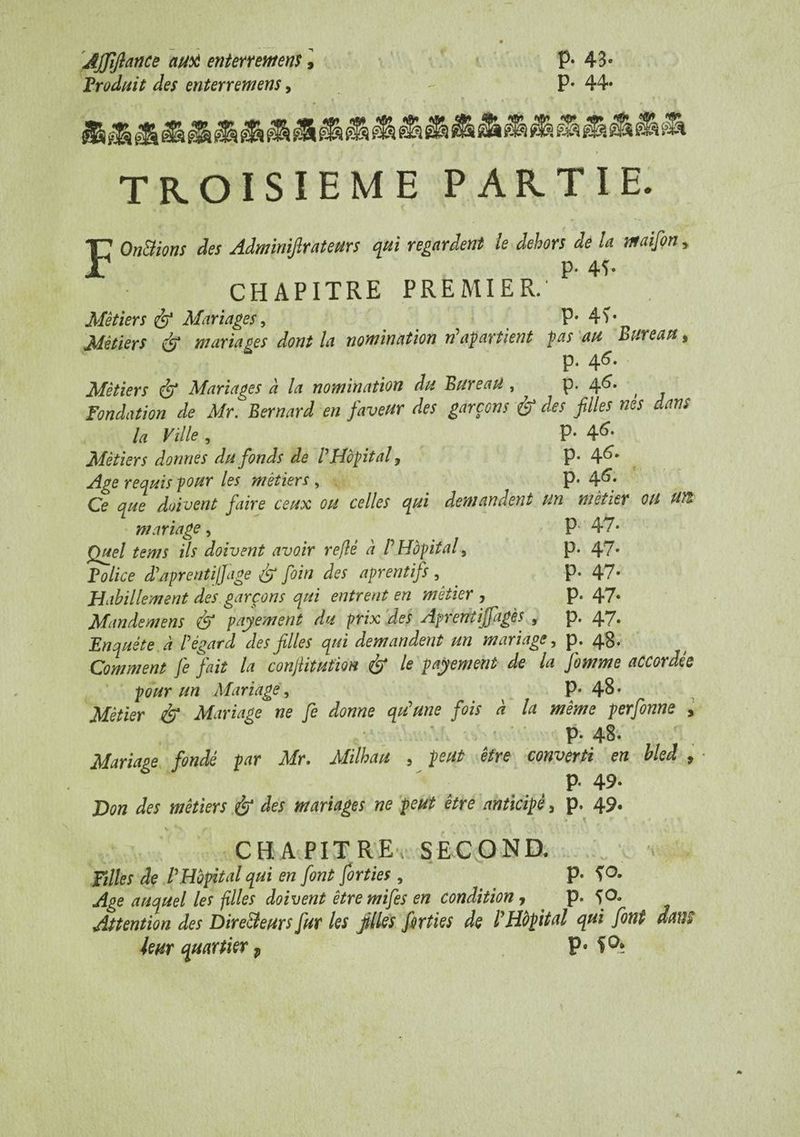 Aſſiſtance aux enterremens, p. 43.
Produit des enterremens, p. 44.
TROISIEME PARTIE.
FOnctions des Adminiſtrateurs qui regardent le dehors de la maiſon,
p. 45.
CHAPITRE PREMIER.
Mêtiers & Mariages, p. 45.
Mêtiers & mariages dont la nomination n'apartient pas au Bureau,
p. 46.
Mêtiers & Mariages à la nomination du Bureau, p. 46.
Fondation de Mr. Bernard en faveur des garçons & des filles nés dans
la Ville, p. 46.
Mêtiers donnes du fonds de l'Hôpital, p. 46.
Age requis pour les mêtiers, p. 46.
Ce que doivent faire ceux ou celles qui demandent un mêtier ou un
mariage, p. 47.
Quel tems ils doivent avoir reſté à l'Hôpital, p. 47.
Police d'aprentiſſage & ſoin des aprentifs, p. 47.
Habillement des garçons qui entrent en mêtier, p. 47.
Mandemens & payement du prix des Aprentiſſagès, p. 47.
Enquête à l'égard des filles qui demandent un mariage, p. 48.
Comment ſe fait la conſtitution & le payement de la ſomme accordée
pour un Mariage, p. 48.
Mêtier & Mariage ne ſe donne qu'une fois à la même perſonne,
p. 48.
Mariage fondé par Mr. Milhau, peut être converti en bled,
p. 49.
Don des mêtiers & des mariages ne peut être anticipé, p. 49.
CHAPITRE SECOND.
Filles de l'Hôpital qui en ſont ſorties, p. 50.
Age auquel les filles doivent être miſes en condition, p. 50.
Attention des Directeurs ſur les filles ſorties de l'Hôpital qui ſont dans
leur quartier, p. 50.